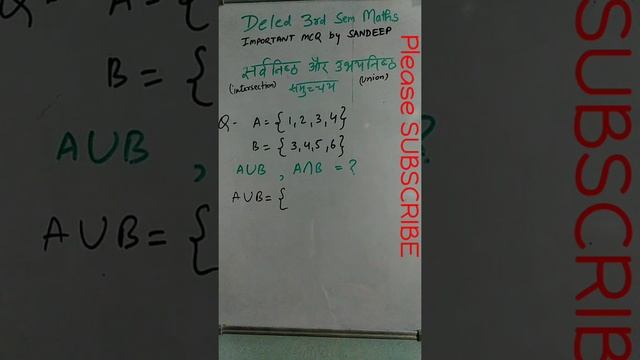 Deled 3rd Sem Maths
IMPORTANT MCQ by SANDEEP
सर्वनिष्ठ और उभयनिष्ठ
(intersection) समुच्चय (union)
Q- A = {1,2,3,4}
B = {3,4,5,6}
A∪B , A∩B = ?
A∪B = {
Please SUBSCRIBE